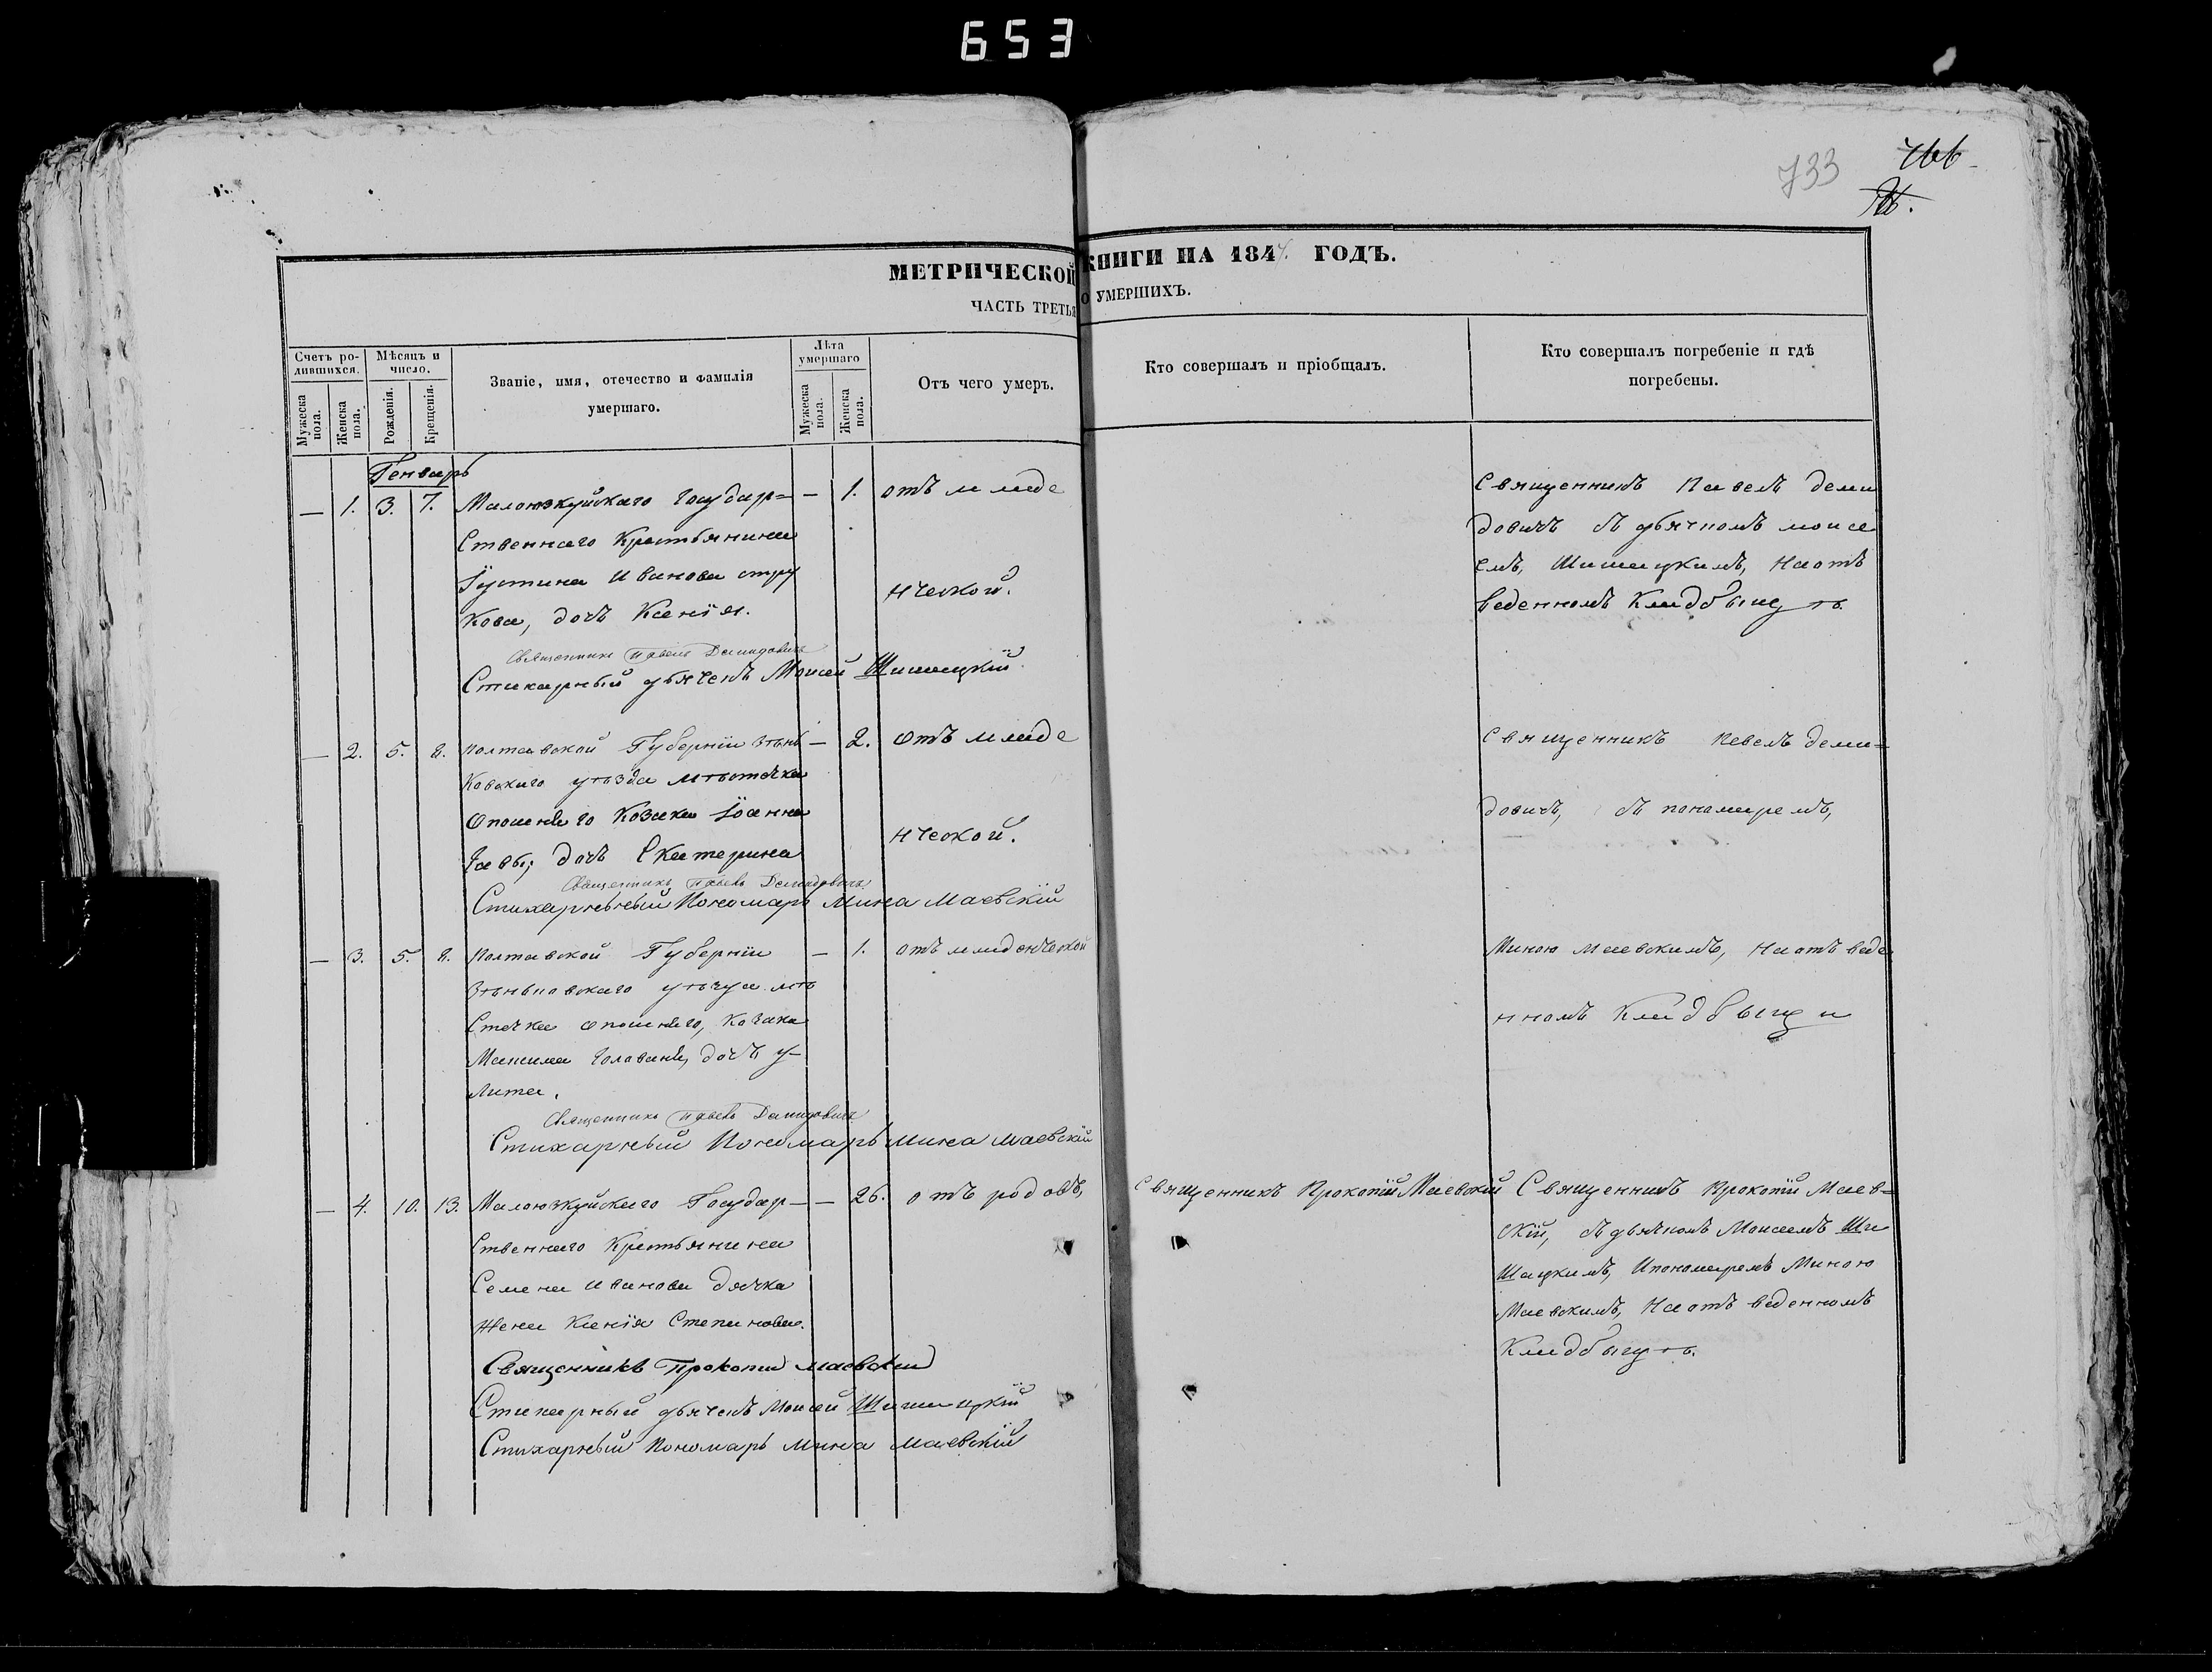 653
733
МЕТРИЧЕСКОЙ КНИГИ НА 1847. ГОДЪ.
ЧАСТЬ ТРЕТЬЯ О УМЕРШИХЪ.
Счетъ ро-
дившихся.
Мужеска пола.
Женска пола.
Мѣсяцъ и
число.
Рожденія.
Крещенія.
Званіе, имя, отечество и фамилія
умершаго.
Лѣта
умершаго
Мужеска пола.
Женска пола.
Отъ чего умеръ.
Кто совершалъ и пріобщалъ.
Кто совершалъ погребеніе и гдѣ
погребены.
Генварь
— 1. 3. 7. Малоюзкуйскаго Государ= — 1. отъ младе
ственнаго Крестьянина
Іустина Иванова стру
нческой.
кова, дочь Ксенія.
Священникъ Павелъ Демидовичъ
Стихарный дьячекъ Моисей Шишацкій
Священникъ Павелъ Деми
довичъ съ дьячкомъ Моисе
емъ, Шишацкимъ, На отъ
веденномъ Кладбищѣ
— 2. 5. 8. Полтавской Губерніи Зѣнь — 2. отъ младе
ковскаго уѣзда мѣстечка
Опошняго Козака Іоанна
нческой.
дочь Екатерина
Священникъ Павелъ Демидовичъ
Стихарный Пономарь Мина Маевскій
Священникъ Павелъ Деми=
довичъ, съ понамаремъ,
— 3. 5. 8. Полтавской Губерніи — 1. отъ младенческой
Зѣньковскаго уѣзда мѣ
стечка Опошняго, Козака
Максима Головани, дочь у-
лита.
Священникъ Павелъ Демидовичъ
Стихарный Пономарь Мина Маевскій
Миною Маевскимъ, На отъ веде
нномъ Кладбищи
— 4. 10. 13. Малоюзкуйскаго Государ- — 26. отъ родовъ,
ственнаго Крестьянина
Семена Иванова Дячка
Жена Ксенія Степанова.
Священникъ Прокопій Маевскій
Стихарный дьячекъ Моисей Шишацкій
Стихарный Пономарь Мина Маевскій
Священникъ Прокопій Маевскій
Священникъ Прокопій Маев=
скій, съ дьячкомъ Моисеемъ Ши
шацкимъ, Ипономаремъ Миною
Маевскимъ, На отъ веденномъ
Кладбищѣ.